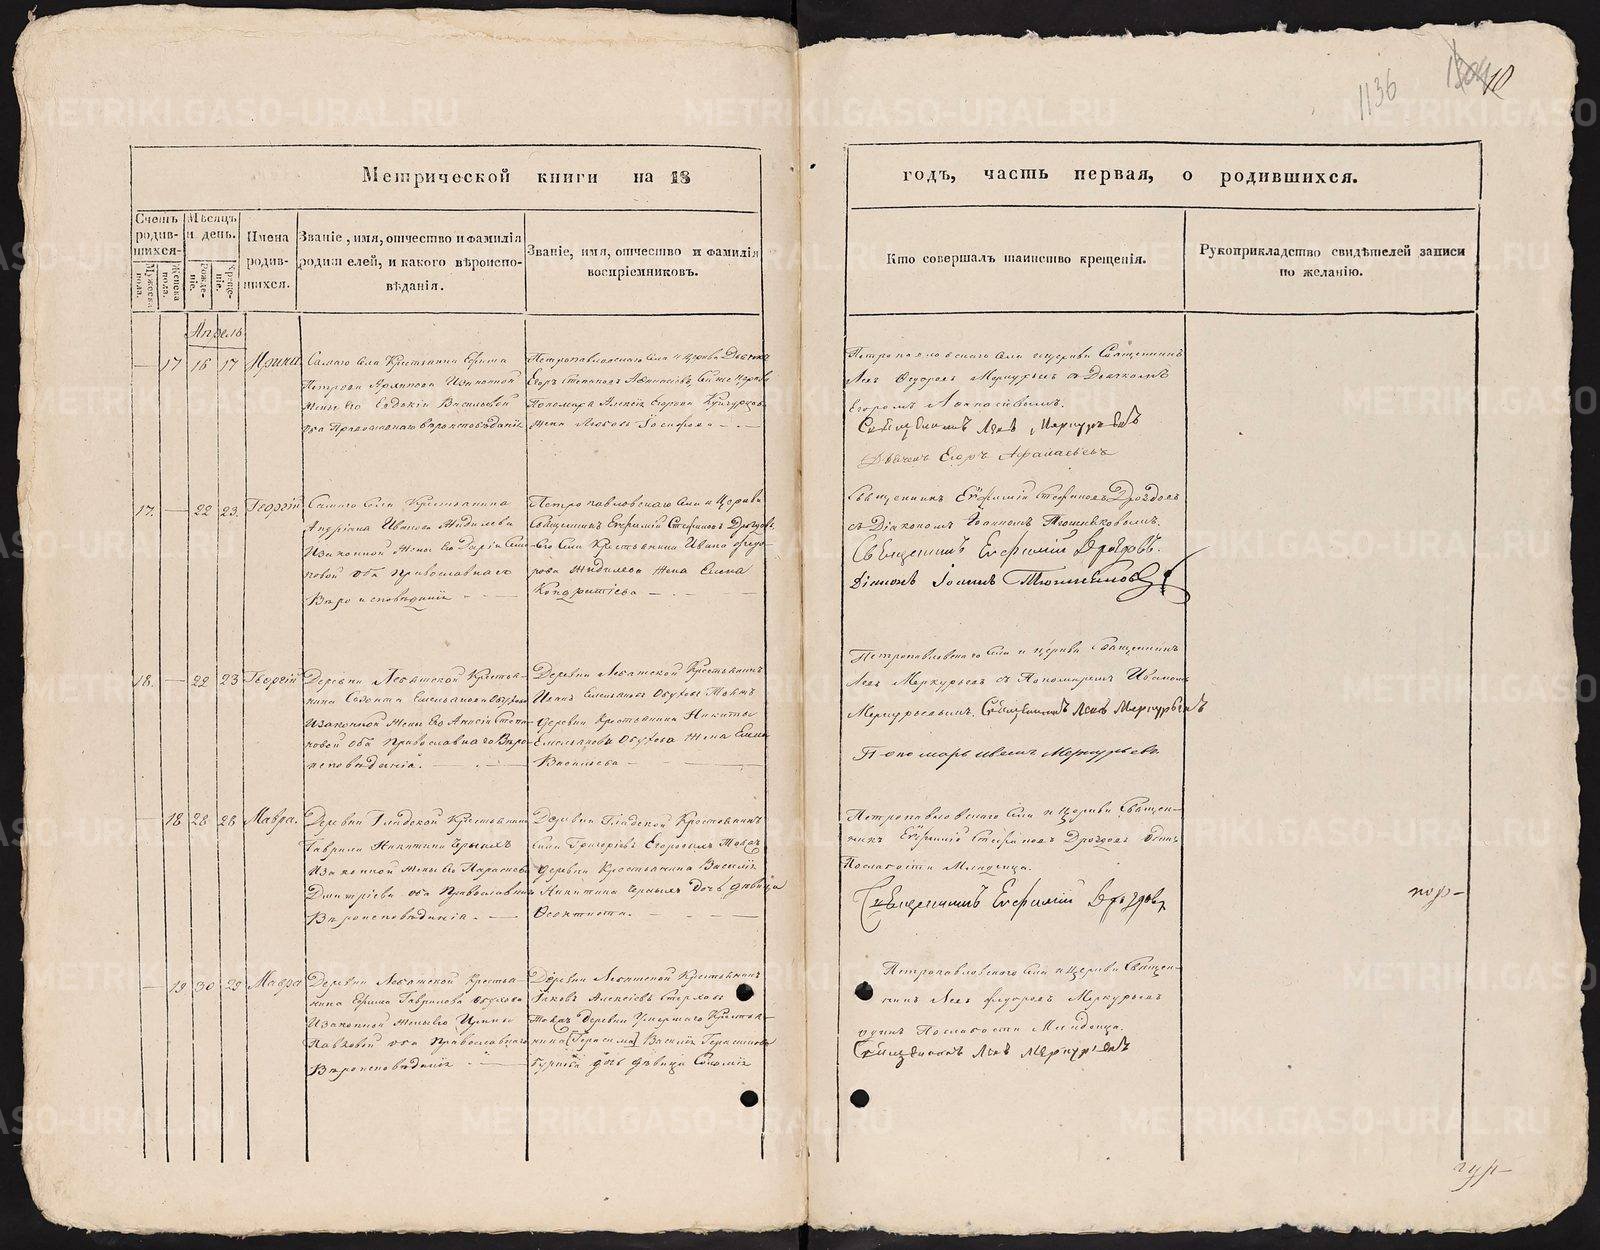 1136
18
Метрической книги на 18
годъ, часть первая, о родившихся.
Счетъ родив-шихся.
Мужеска пола.
Женска пола.
Мѣсяцъ и день.
Рожде-ніе.
Креще-ніе.
Имена родив-шихся.
Званіе, имя, отчество и фамилія родителей, и какого вѣроиспо-вѣданія.
Званіе, имя, отчество и фамилія воспріемниковъ.
Кто совершалъ таинство крещенія.
Рукоприкладство свидѣтелей записи по желанію.
Апрель
— 17 16 17 Ирина
Самаго Села Крестьянина Ефима
Петрова
Изаконной
жены его Евдокіи Васильевой
оба Православнаго вѣроисповѣданія
Петропавловскаго Села и Церкви Дьячекъ
Егоръ Степановъ Афанасьевъ, Сейже Церкви
Пономаря Алексія Егорова
жена Любовь Іосифова
Петропавловскаго Села и Церкви Священникъ
Левъ Федоровъ Меркурьевъ съ Дьячкомъ
Егоромъ Афанасьевымъ.
Священникъ Левъ Меркурьевъ
Дьячекъ Егоръ Афанасьевъ
17. — 22 23. Георгій
Самаго Села Крестьянина
Андріана Иванова Жидилева
Изаконной Жены его Даріи
оба Православнаго
Вѣроисповѣданія
Петропавловскаго Села и Церкви
Священникъ Евфимій Стефановъ Дроздовъ
Села Крестьянина Ивана Федо-
рова Жидилева Жена Елена
Кондратьева
Священникъ Евфимій Стефановъ Дроздовъ
съ Діакономъ Іоанномъ Тюшняковымъ.
Священникъ Евфимій Дроздовъ.
Діаконъ Іоаннъ Тюшняковъ
18. — 22 23 Георгій
Деревни Крестья-
нина Созонта Емельянова Обухова
Изаконной Жены его Анисіи Степа-
новой оба Православнаго Вѣро-
исповѣданія.
Деревни Крестьянинъ
Иванъ Емельяновъ Обуховъ Тояжъ
деревни Крестьянина Никиты
Емельянова Обухова Жена Елена
Васильева
Петропавловскаго Села и Церкви Священникъ
Левъ Меркурьевъ съ Пономаремъ Иваномъ
Меркурьевымъ. Священникъ Левъ Меркурьевъ
Пономарь Иванъ Меркурьевъ
— 18 28 28 Мавра.
Деревни Гладкой Крестьянина
Гаврила Никитина Черныхъ
Изаконной жены его Парасковьи
Дмитріевы оба Православнаго
Вѣроисповѣданія.
Деревни Гладкой Крестьянинъ
Григорьевъ Егоровыхъ Тояжъ
деревни Крестьянина Василія
Никитина Черныхъ Дочь дѣвица
Феоктиста.
Петропавловскаго Села и Церкви Священ-
никъ Евфимій Стефановъ Дроздовъ одинъ
Послабости Младенца.
Священникъ Евфимій Дроздовъ
— 19 30 29 Мавра
Деревни Крестья-
нина Ефима Гаврилова Обухова
Изаконной жены его Ирины
Павловой оба Православнаго
Вѣроисповѣданія
Деревни Крестьянинъ
Іаковъ Алексіевъ Стерховъ
Тояжъ деревни Умершаго Крестья-
нина [Герасима] Василія Герасимова
дочь дѣвица
Петропавловскаго Села и Церкви Священ-
никъ Левъ Федоровъ Меркурьевъ
одинъ Послабости Младенца.
Священникъ Левъ Меркурьевъ
METRIKI.GASO-URAL.RU